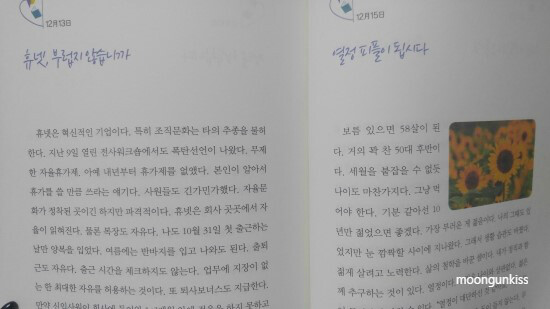 12月13日
휴넷, 부럽지 않습니까
휴넷은 혁신적인 기업이다. 특히 조직문화는 타의 추종을 불허
한다. 지난 9일 열린 전사워크숍에서도 폭탄선언이 나왔다. 무제
한 자율휴가제. 아예 내년부터 휴가제를 없앴다. 본인이 알아서
휴가를 쓸 만큼 쓰라는 얘기다. 사원들도 긴가민가했다. 자율문
화가 정착된 곳이긴 하지만 파격적이다. 휴넷은 회사 곳곳에서 자
율이 읽혀진다. 물론 복장도 자유다. 나도 10월 31일 첫 출근하는
날만 양복을 입었다. 여름에는 반바지를 입고 나와도 된다. 출퇴
근도 자유다. 출근 시간을 체크하지도 않는다. 업무에 지장이 없
는 한 최대한 자유를 허용하는 것이다. 또 퇴사보너스도 지급한다.
만약 신입사원이 회사에 적응을 하지 못하고
12月15日
열정 피플이 됩시다
보름 있으면 58살이 된
다. 저의 꽉 찬 50대 후반이
다. 세월을 붙잡을 수 없듯
나이도 마찬가지다. 그냥 먹
어야 한다. 기분 같아선 10
년만 젊었으면 좋겠다. 가장 부러운 게 젊음이다. 나의 그때도 있
었지만 눈 깜짝할 사이에 지나갔다. 그래서 생활 습관도
젊게 살려고 노력한다. 삶의 철학을 바꾼 셈이다.
께 추구하는 것이 있다. 열정이다.
moongunkiss